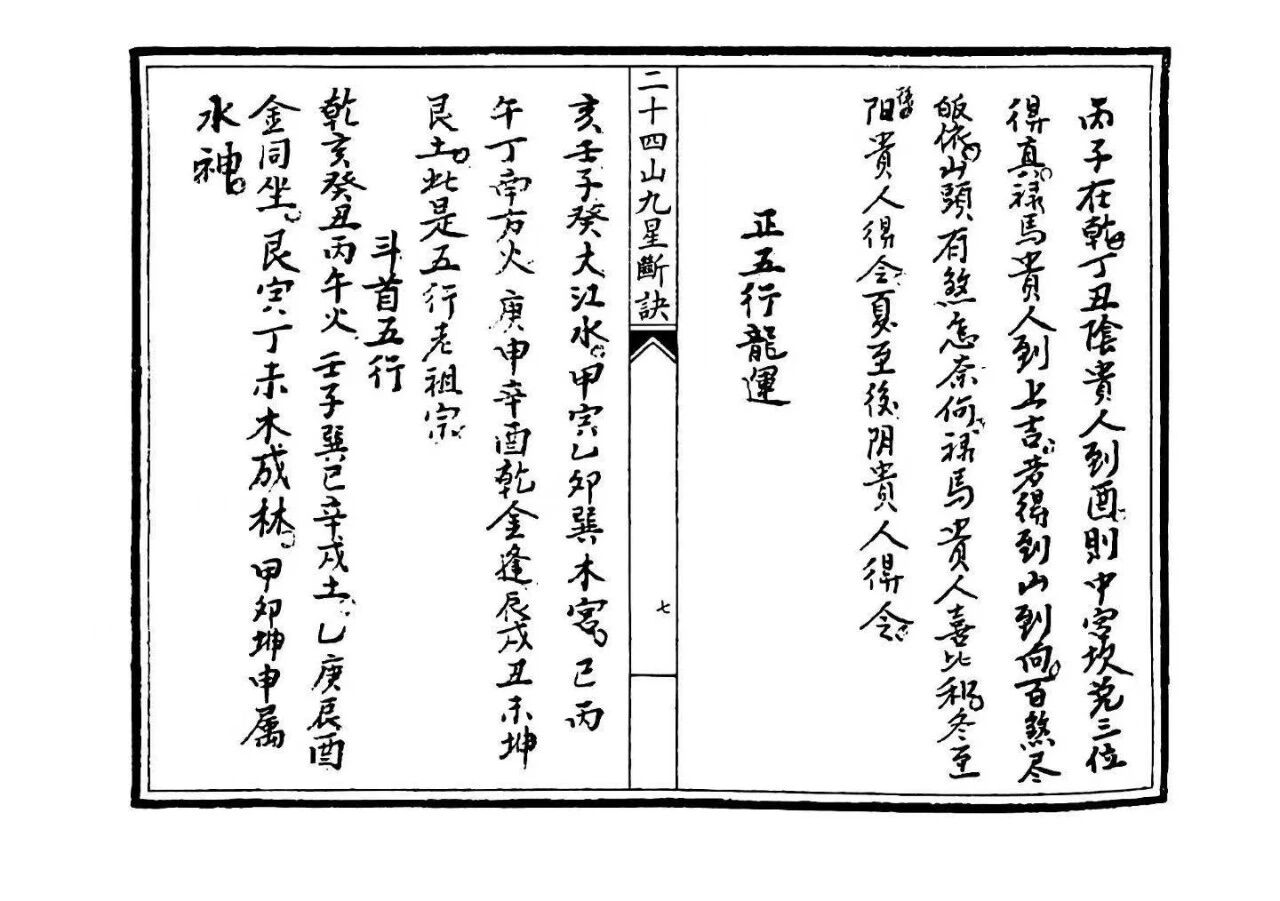 丙子在乾。丁丑陰貴人到酉。則中宮坎兑三位
得真。禄馬貴人到上吉。若得到山到向。百煞尽
皈依。山頭有煞怎奈何。禄馬貴人喜比和。冬至
後阳貴人得令。夏至後阴貴人得令。
正五行龍運
二十四山九星斷訣
七
亥壬子癸大江水。甲寅乙卯巽木宮。巳丙
午丁南方火。庚申辛酉乾金逢。辰戌丑未坤
艮土。此是五行老祖宗。
斗首五行
乾亥癸丑丙午火。壬子巽巳辛戌土。乙庚辰酉
金同坐。艮寅丁未木成林。甲卯坤申属
水神。